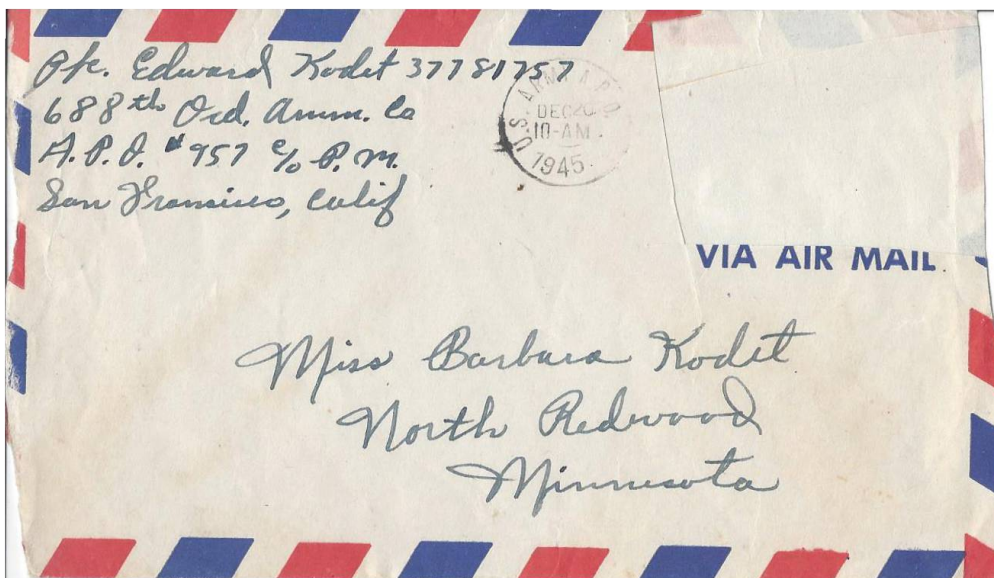 Pfc. Edward Kodet 37781757
688th Ord. Amm. Co
A.P.O. #957 c/o P.M.
San Francisco, Calif
U.S. ARMY A.P.O.
DEC 20
10-AM
1945
VIA AIR MAIL
Miss Barbara Kodet
North Redwood
Minnesota